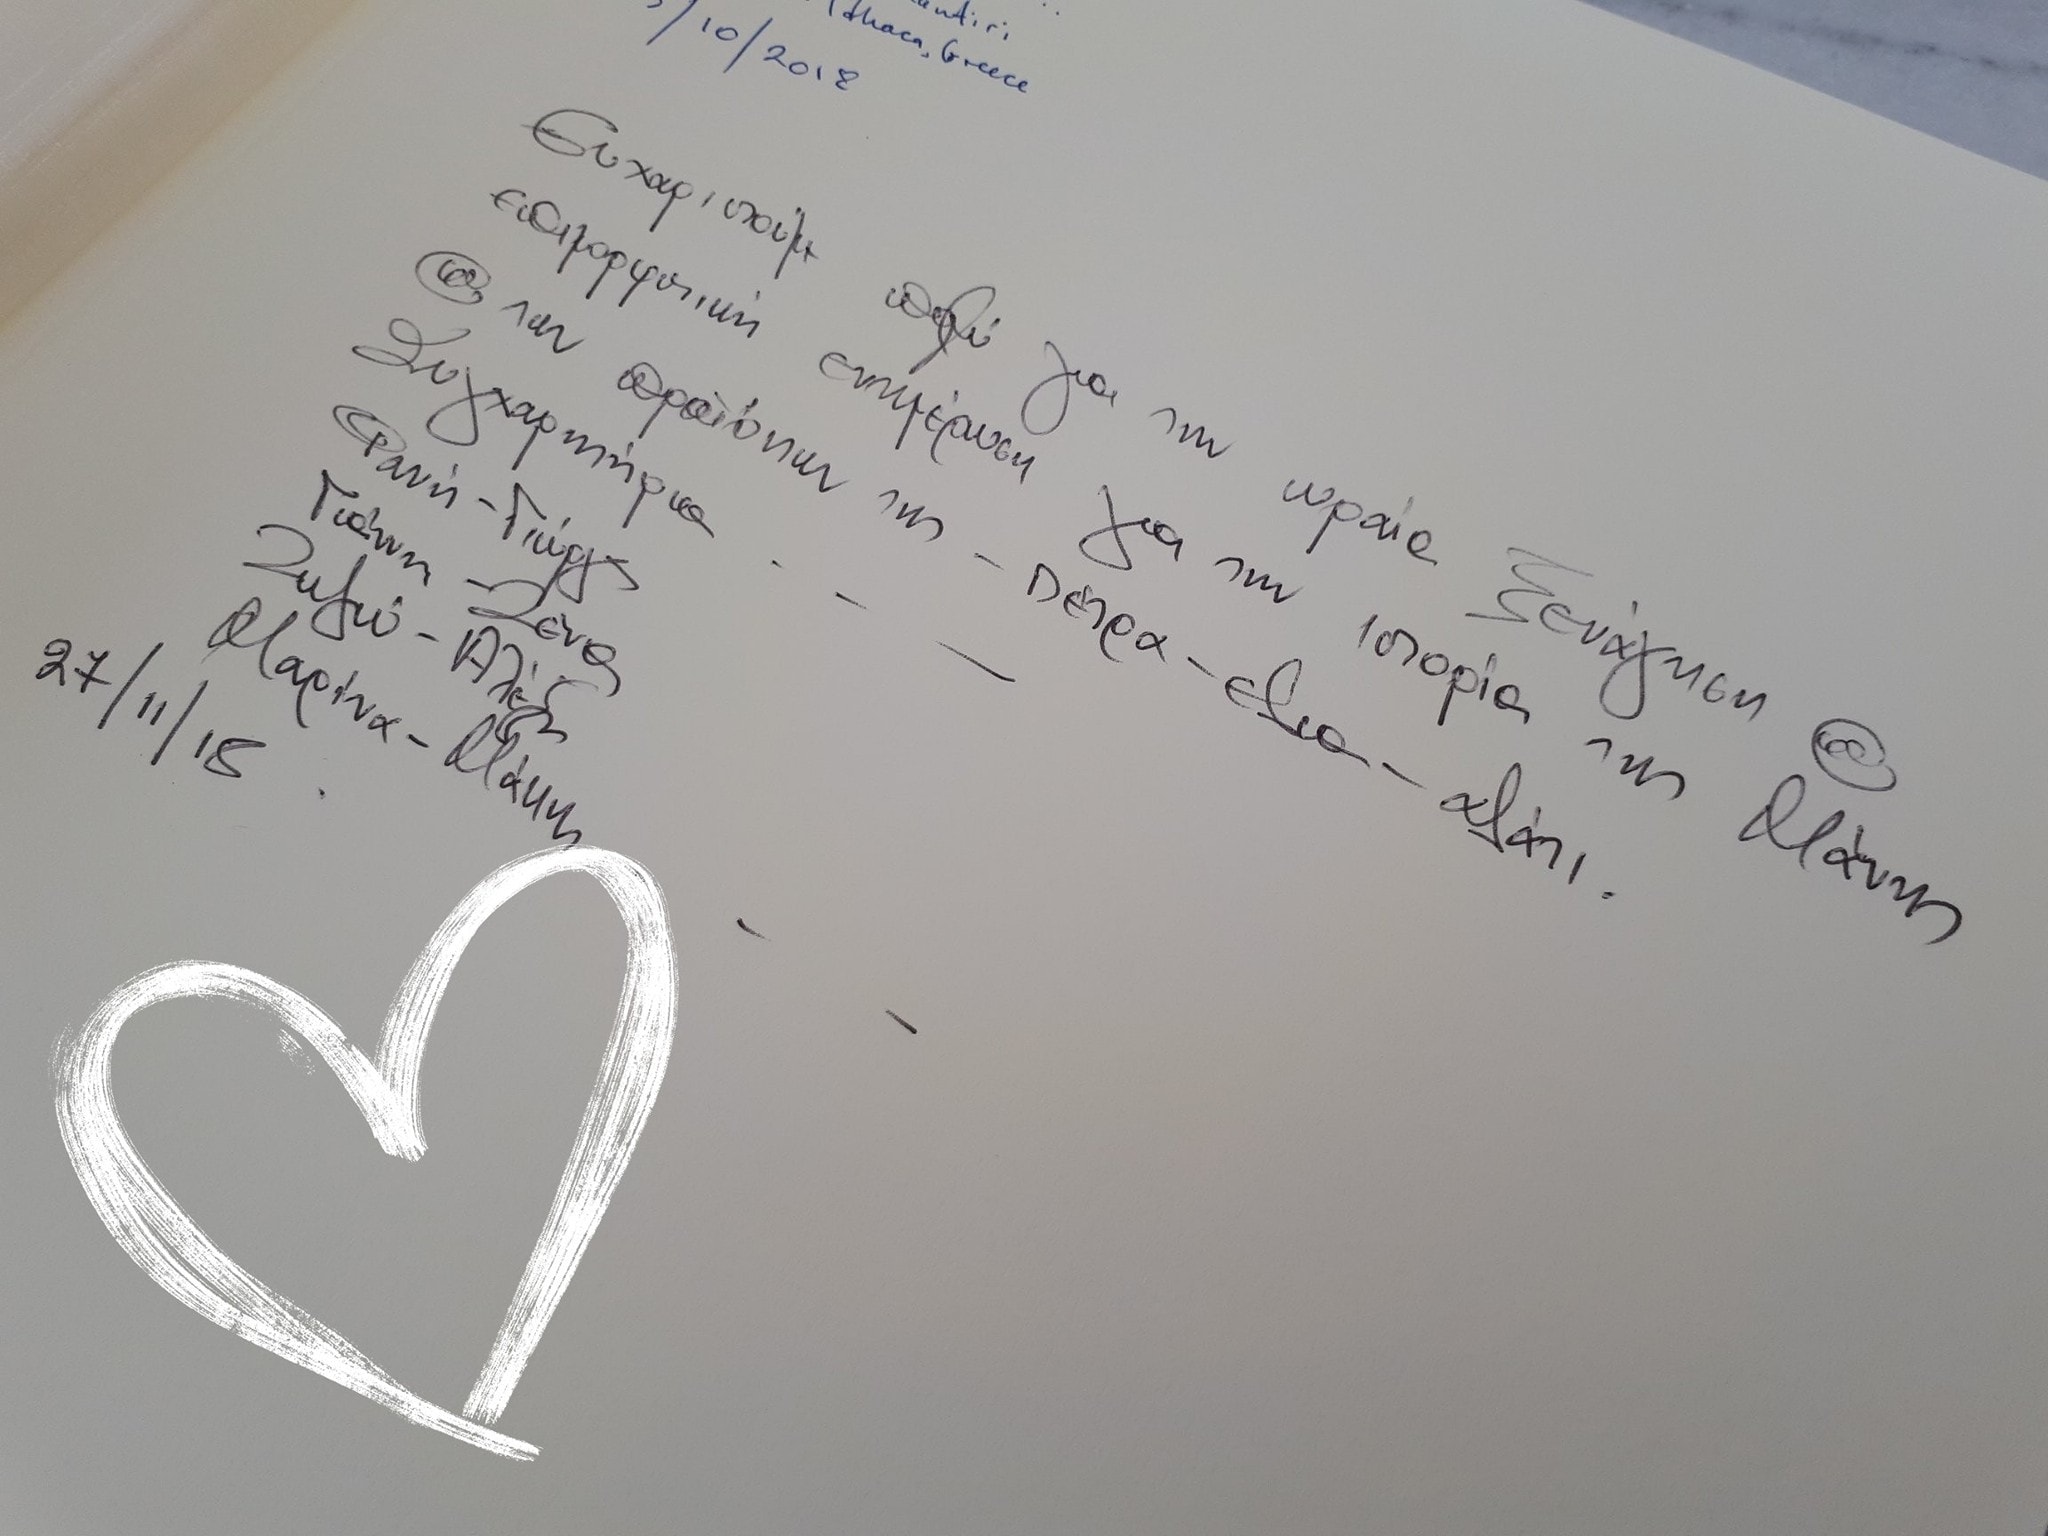 Ithaca, Greece
/10/2018
Ευχαριστούμε πολύ για την ωραία Ξενάγηση &
επιμορφωτική ενημέρωση για την ιστορία της Μάνης
& των προϊόντων της - Πέτρα - ελιά - αλάτι.
Συγχαρητήρια
Φανή - Γιώργος
Γιάννη - Ζένα
Ζωζώ - Αλέξης
Μαρίνα - Μάκης
27/11/18